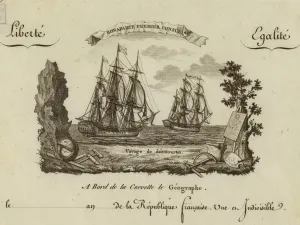 BONAPARTE PREMIER CONSUL
Liberté
Egalité
Voyage de découvertes
A Bord de la Corvette le Géographe.
le an de la République française. Une et Indivisible